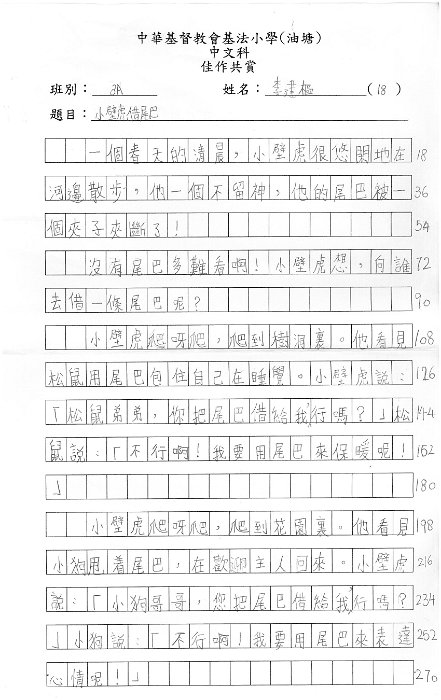 中華基督教會基法小學(油塘)
中文科
佳作共賞
班別： 3A 姓名： 李建樞 (18)
題目： 小壁虎借尾巴
一個春天的清晨，小壁虎很悠閒地在 18
河邊散步，他一個不留神，他的尾巴被一 36
個夾子夾斷了！ 54
沒有尾巴多難看啊！小壁虎想，向誰 72
去借一條尾巴呢？ 90
小壁虎爬呀爬，爬到樹洞裏。他看見 108
松鼠用尾巴包住自己在睡覺。小壁虎說： 126
「松鼠弟弟，你把尾巴借給我行嗎？」松 144
鼠說：「不行啊！我要用尾巴來保暖呢！ 162
」 180
小壁虎爬呀爬，爬到花園裏。他看見 198
小狗甩着尾巴，在歡迎主人回來。小壁虎 216
說：「小狗哥哥，您把尾巴借給我行嗎？ 234
」小狗說：「不行啊！我要用尾巴來表達 252
心情呢！」 270